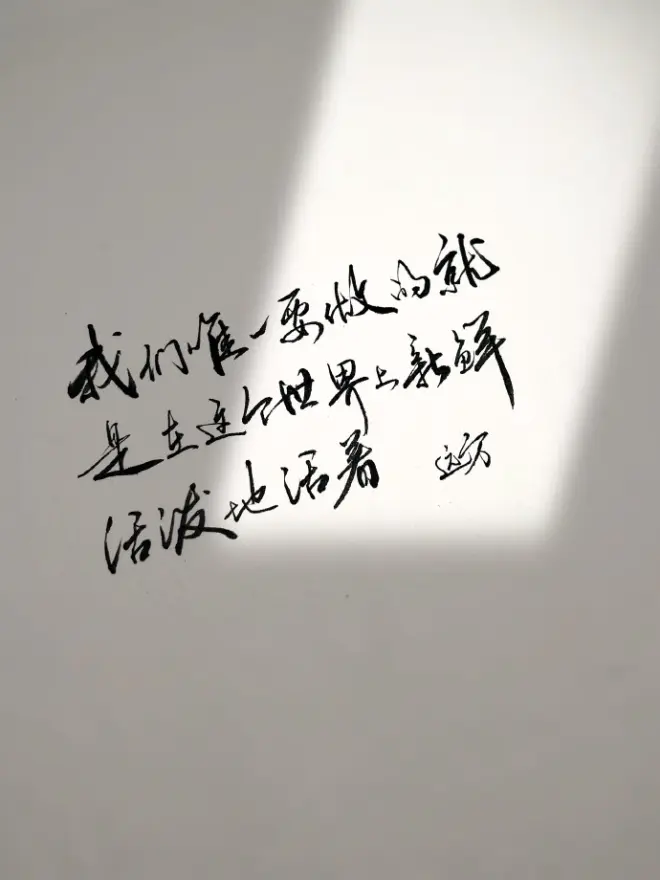 我们唯一要做的就
是在这个世界上新鲜
活泼地活着 远方